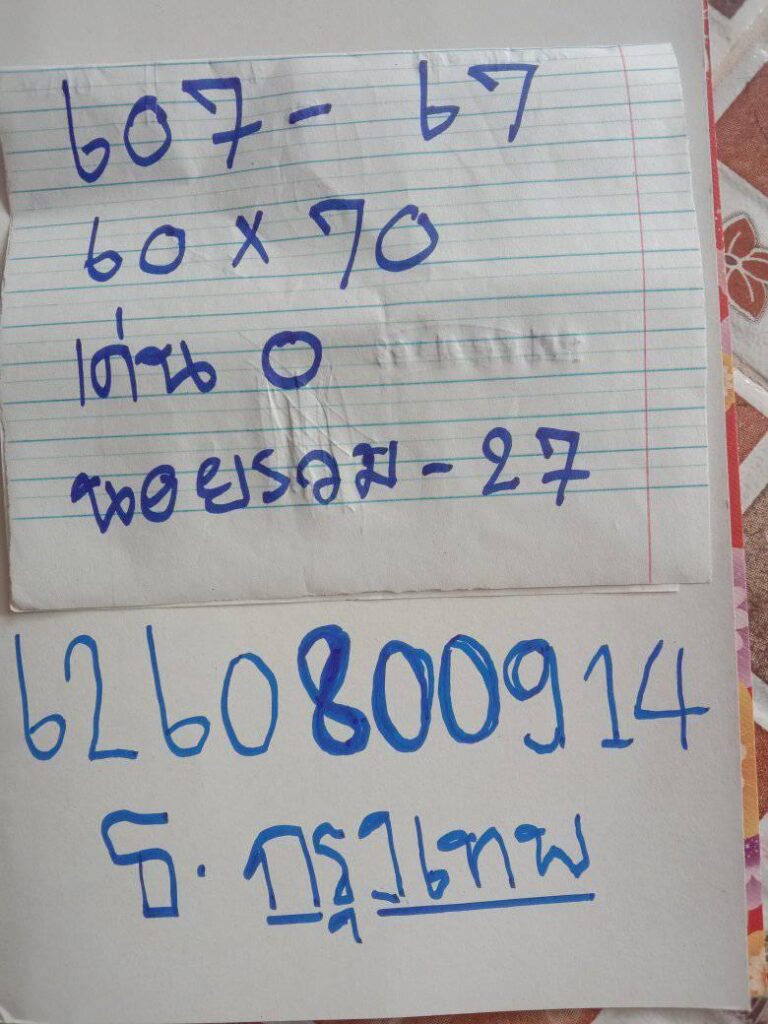 607 - 67
60 x 70
เด่น 0
หอยรวม - 27
6260800914
ธ. กรุงเทพ